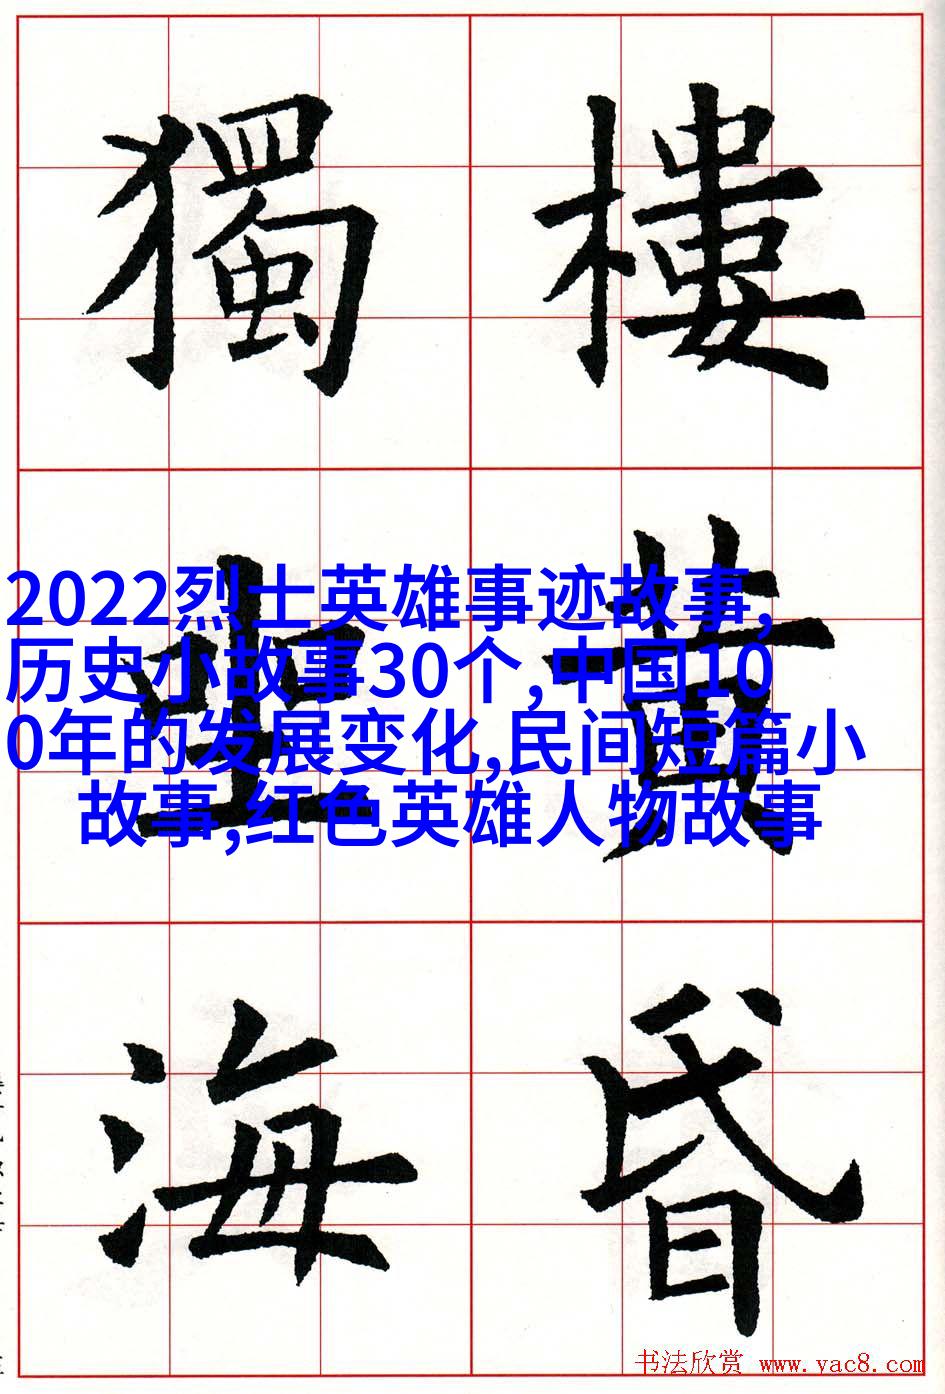 樓黃昏
獨坐海
2022烈士英雄事迹故事,
历史小故事30个,中国10
0年的发展变化,民间短篇小
故事,红色英雄人物故事
书法欣赏 www.yac8.com